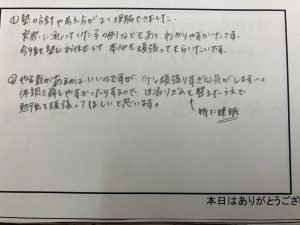 ①塾の方針や考え方がよく理解できました。
実際に通っていた子の例などもあり、わかりやすかったです。
今後も塾にお任せして本人も頑張ってもらいたいです。
②やる気があるのはいいのですが、少し頑張りすぎな気がします…。
体調を崩しやすかったりするので、生活リズムを整えたうえで
勉強を頑張ってほしいと思います。
特に睡眠
本日はありがとうござ